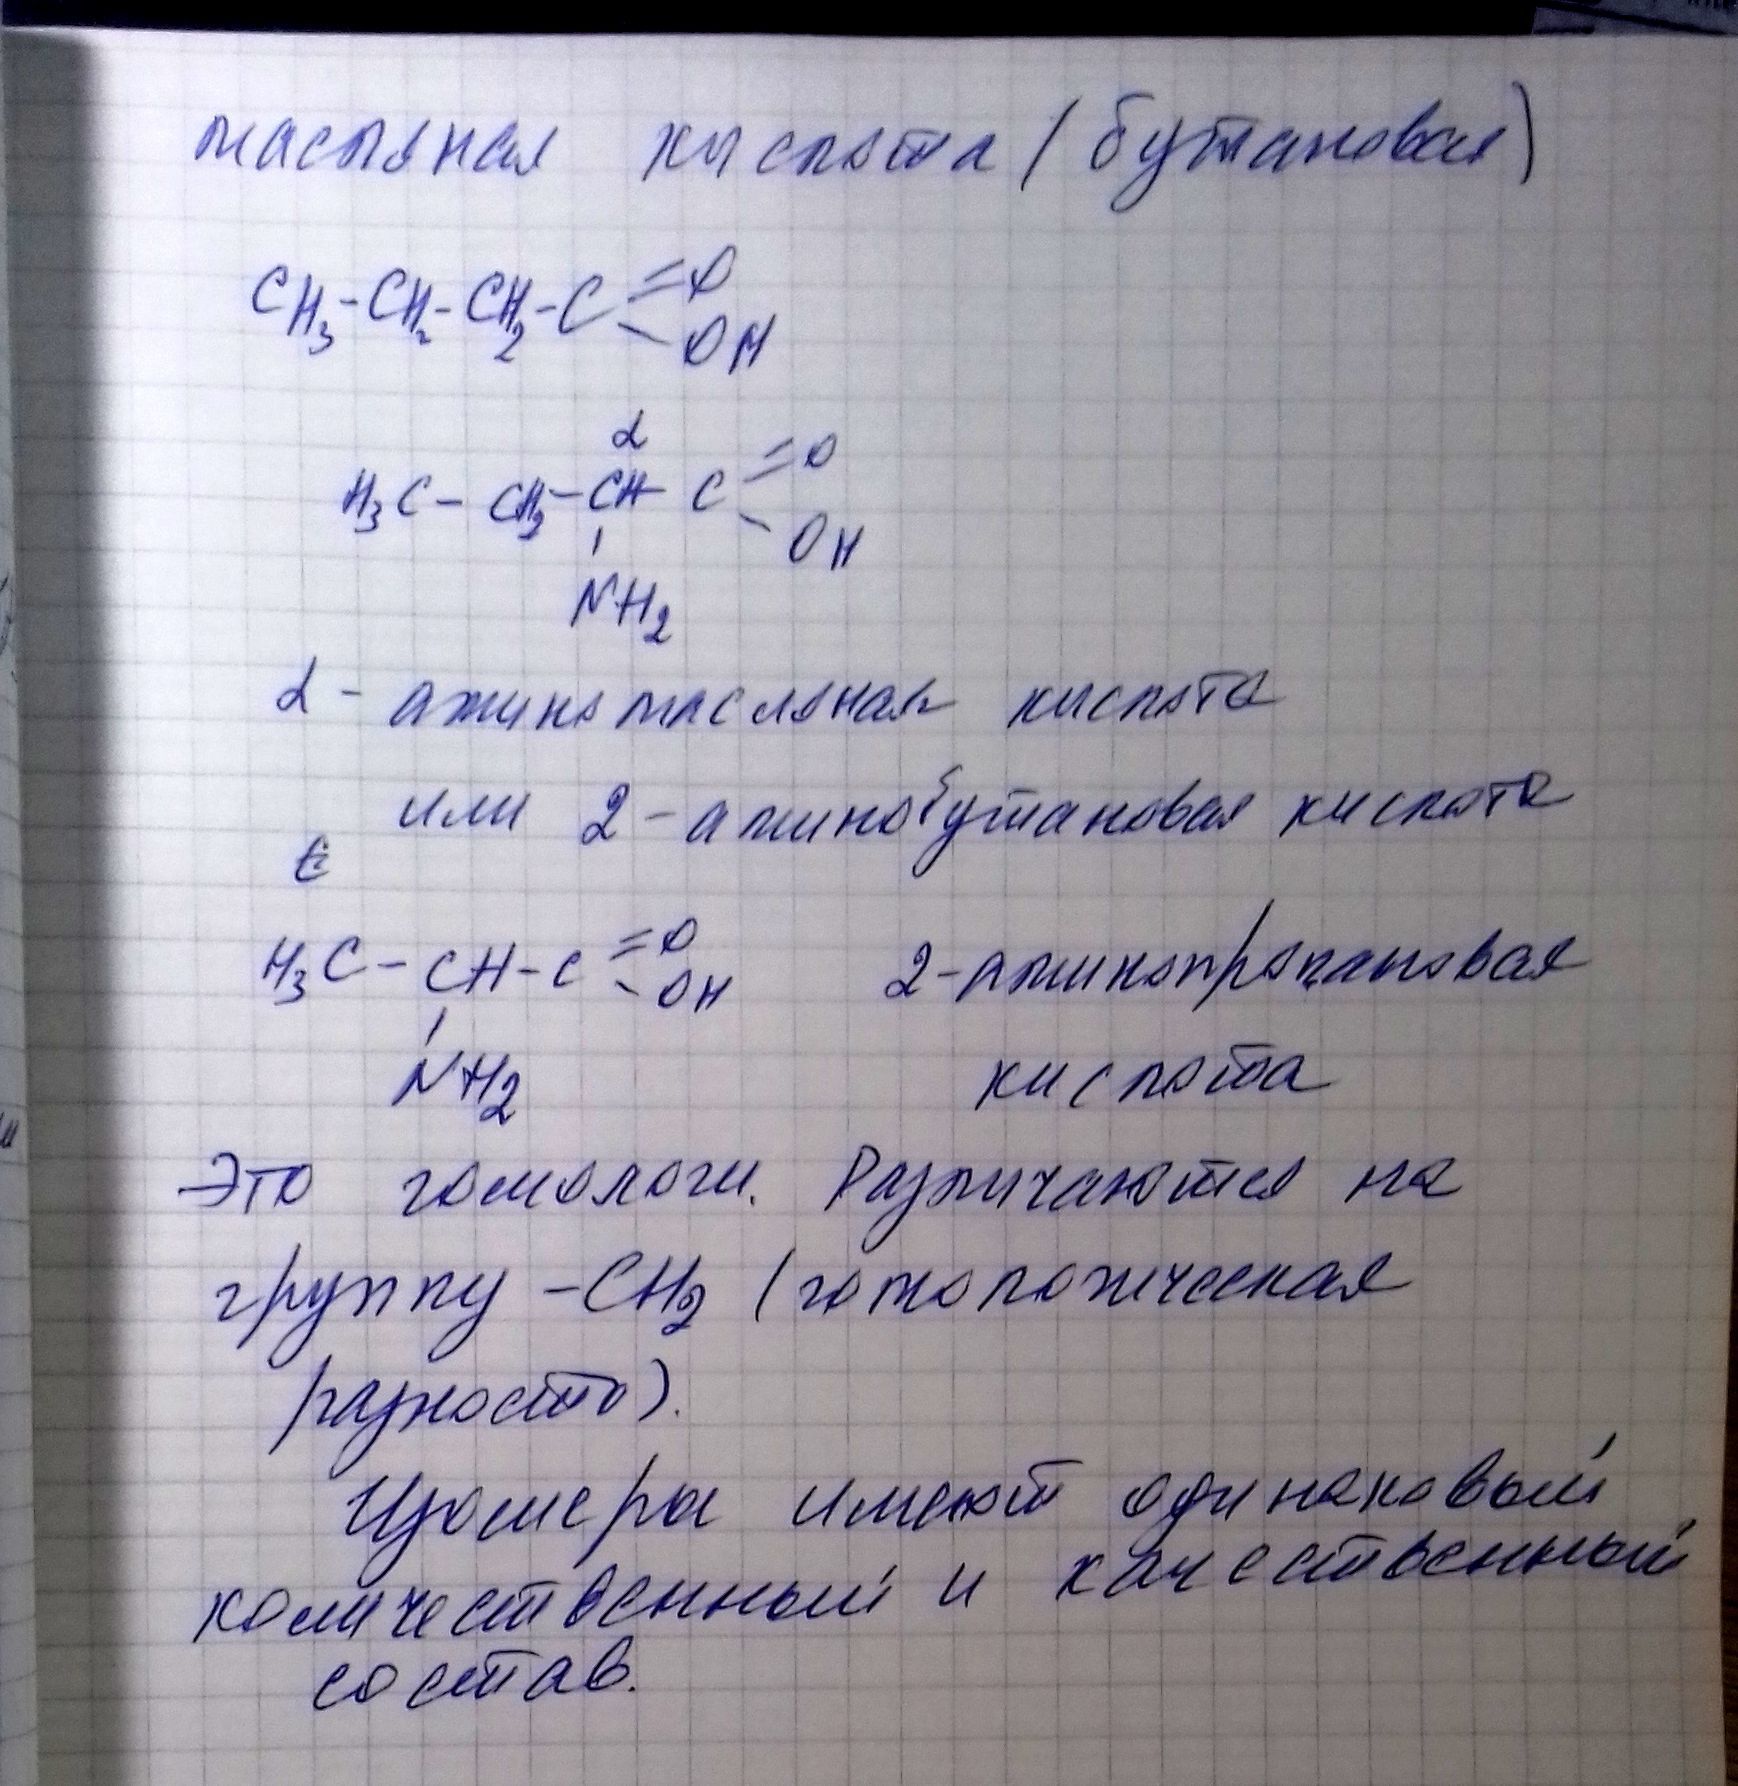 масляная кислота (бутановая)
CH₃-CH₂-CH₂-C=O
-OH
α
H₃C-CH₂-CH-C=O
-OH
NH₂
α-аминомасляная кислота
или 2-аминобутановая кислота
H₃C-CH-C=O 2-аминопропановая
-OH
NH₂ кислота
Это гомологи. Различаются на
группу -CH₂ (гомологическая
разность).
Изомеры имеют одинаковый
количественный и качественный
состав.